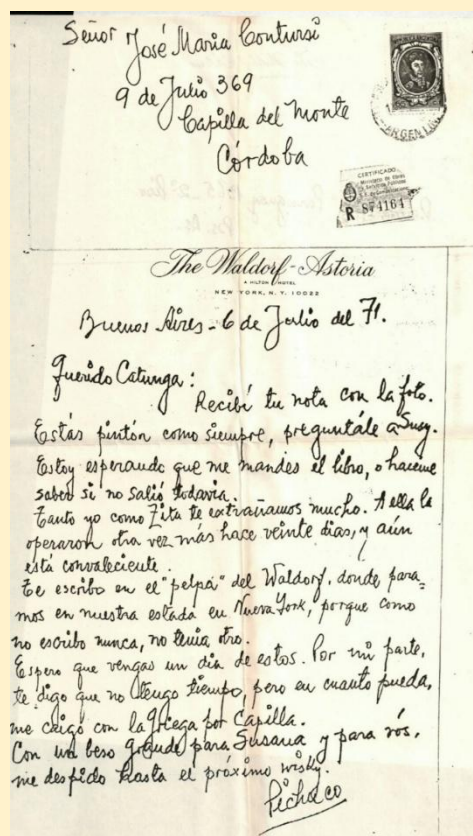 Señor José Maria Contursi
9 de Julio 369
Capilla del Monte
Córdoba
CERTIFICADO
R 874164
The Waldorf-Astoria
A HILTON HOTEL
NEW YORK, N.Y. 10022
Buenos Aires - 6 de Julio del 71.
Querido Catunga:
Recibí tu nota con la foto.
Estás pintón como siempre, preguntále a Susy.
Estoy esperando que me mandes el libro, o haceme
saber si no salió todavia.
Tanto yo como Zita te extrañamos mucho. A ella la
operaron otra vez más hace veinte dias, y aún
está convaleciente.
Te escribo en el "pelpa" del Waldorf, donde para=
mos en nuestra estada en Nueva York, porque como
no escribo nunca, no tenia otro.
Espero que vengas un dia de estos. Por mi parte,
te digo que no tengo tiempo, pero en cuanto pueda,
me caigo con la Griega por Capilla.
Con un beso grande para Susana y para vós,
me despido hasta el próximo wisky.
Pichuco